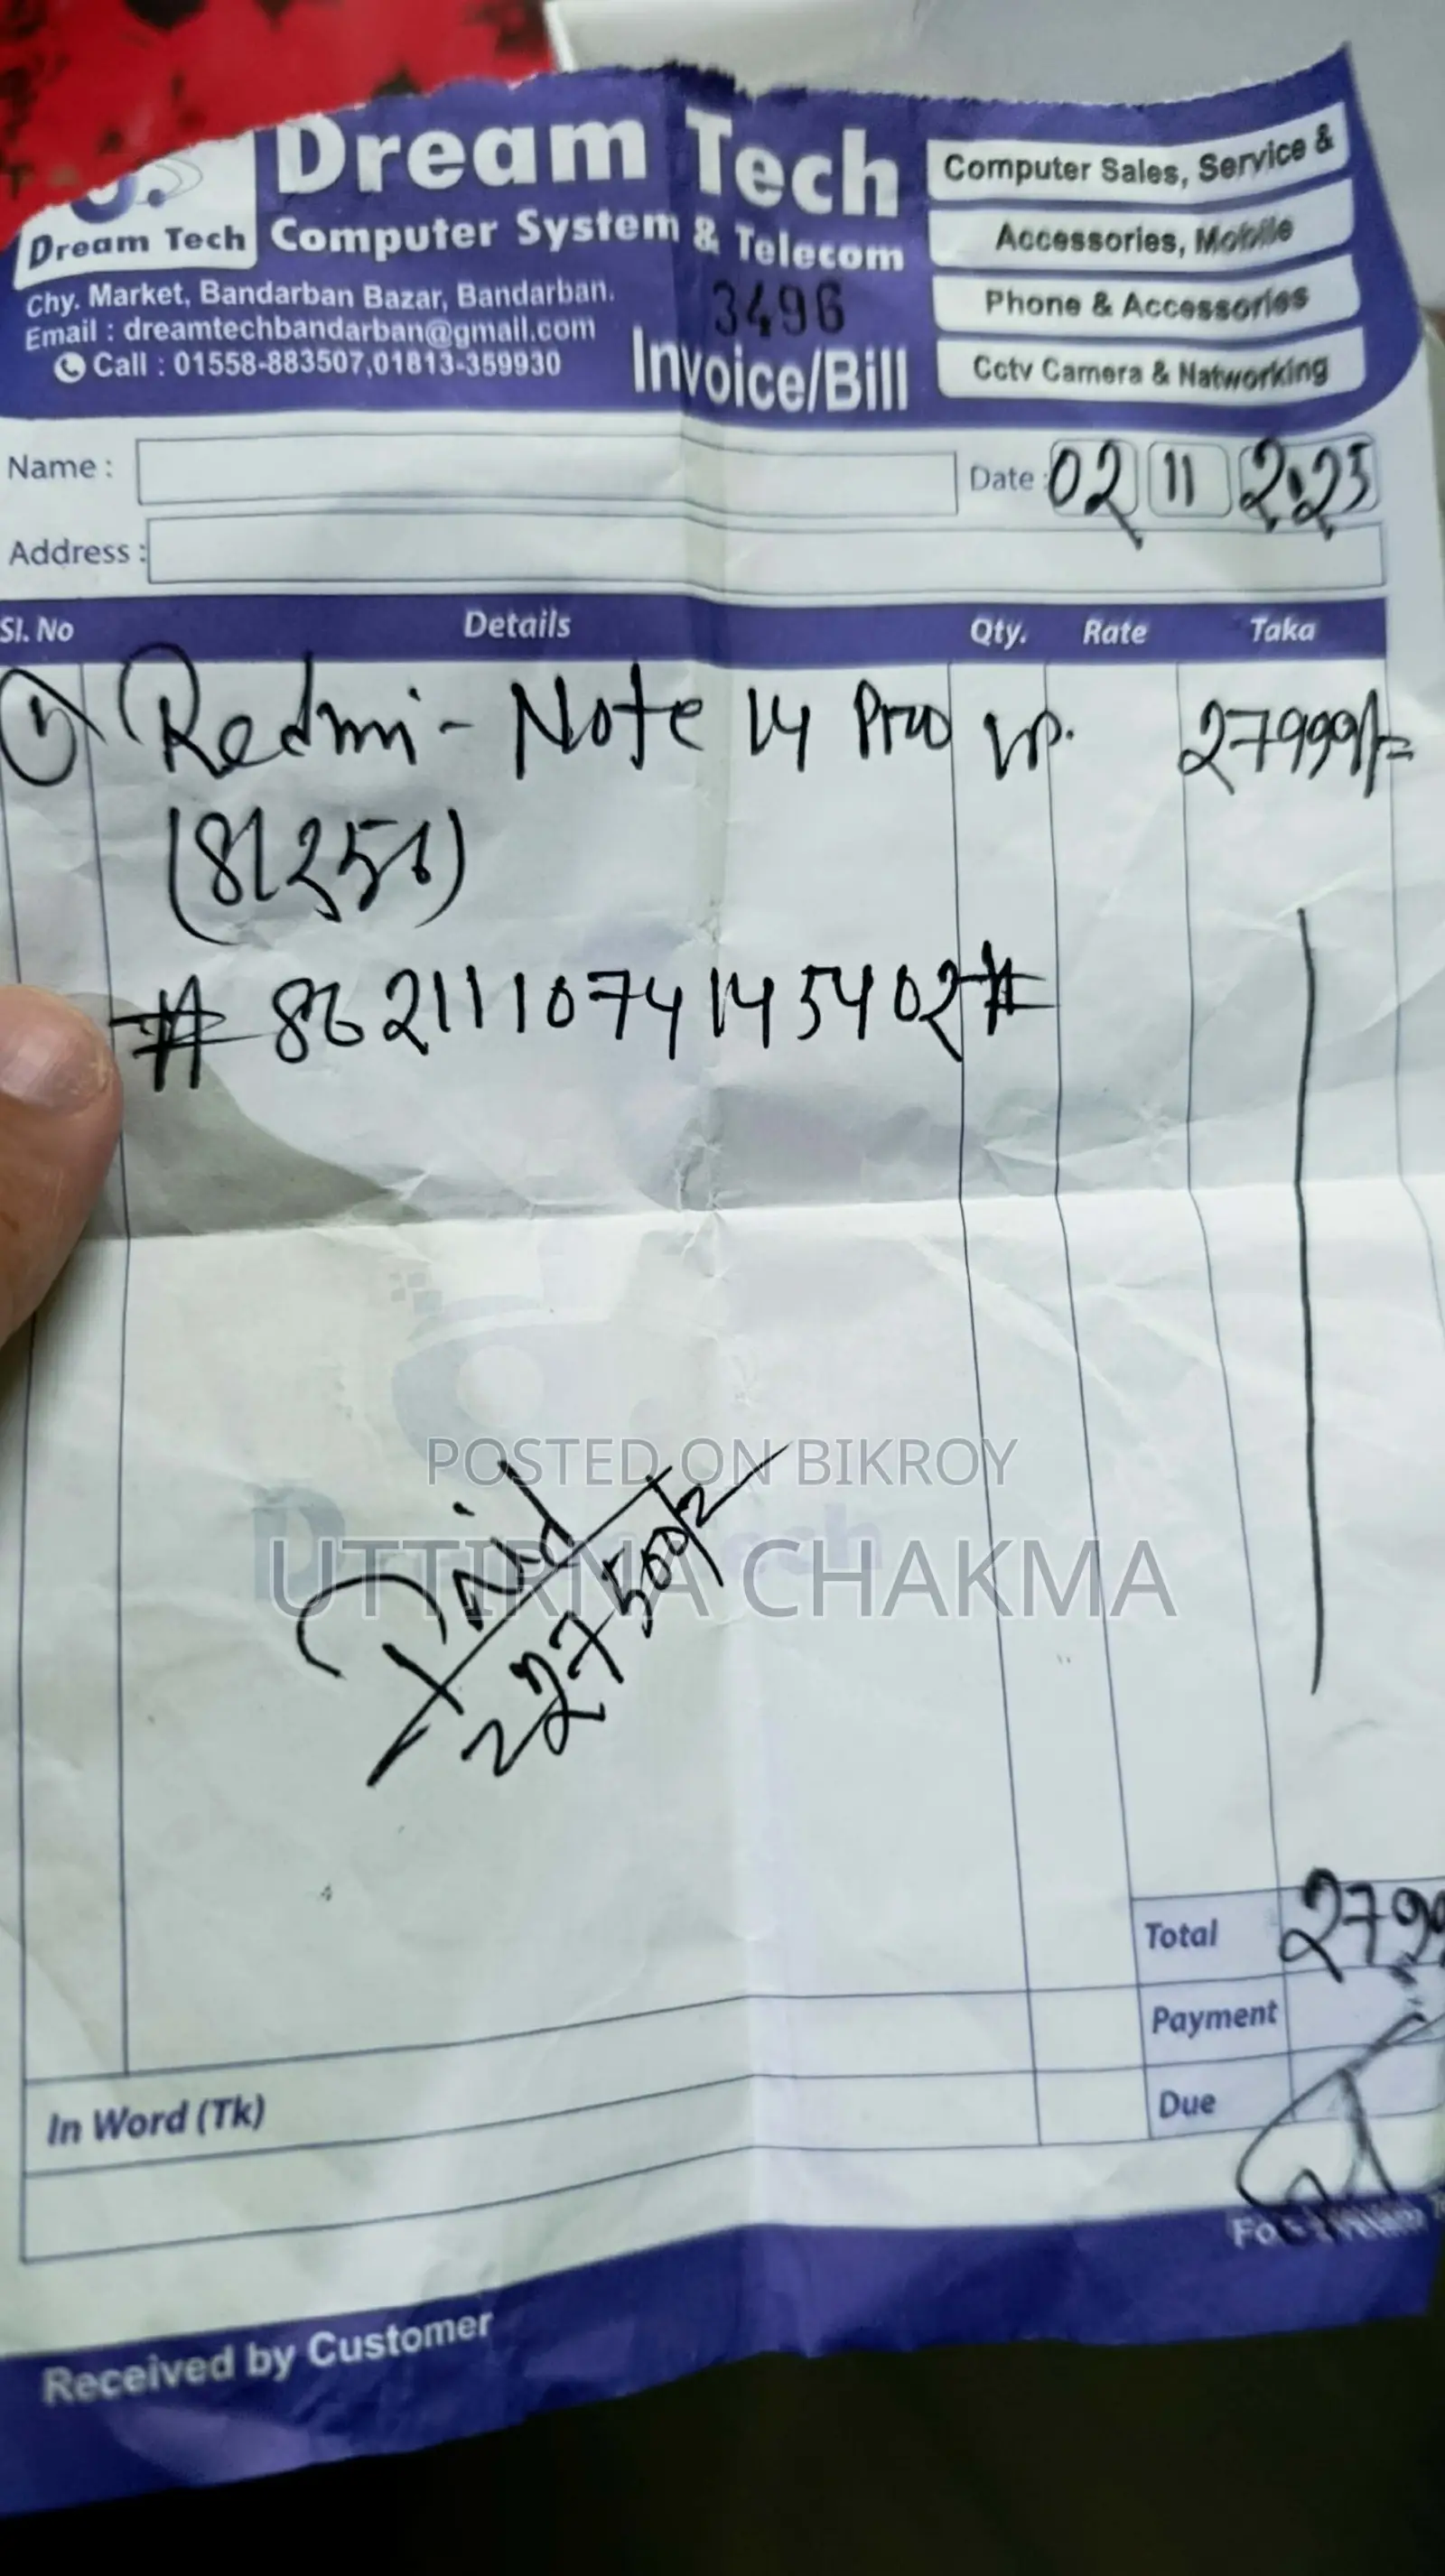 Dream Tech
Dream Tech
Computer System & Telecom
Chy. Market, Bandarban Bazar, Bandarban.
Email : dreamtechbandarban@gmail.com
Call : 01558-883507,01813-359930
3496
Invoice/Bill
Computer Sales, Service &
Accessories, Mobile
Phone & Accessories
Cctv Camera & Natworking
Name :
Date : 02 11 2025
Address :
Sl. No Details Qty. Rate Taka
1) Redmi - Note 14 Pro 1p. 27999/=
(8/256)
# 862111074145402 #
POSTED ON BIKROY
UTTIRNA CHAKMA
Paid
27500/=
Total 2799
Payment
Due
In Word (Tk)
Received by Customer